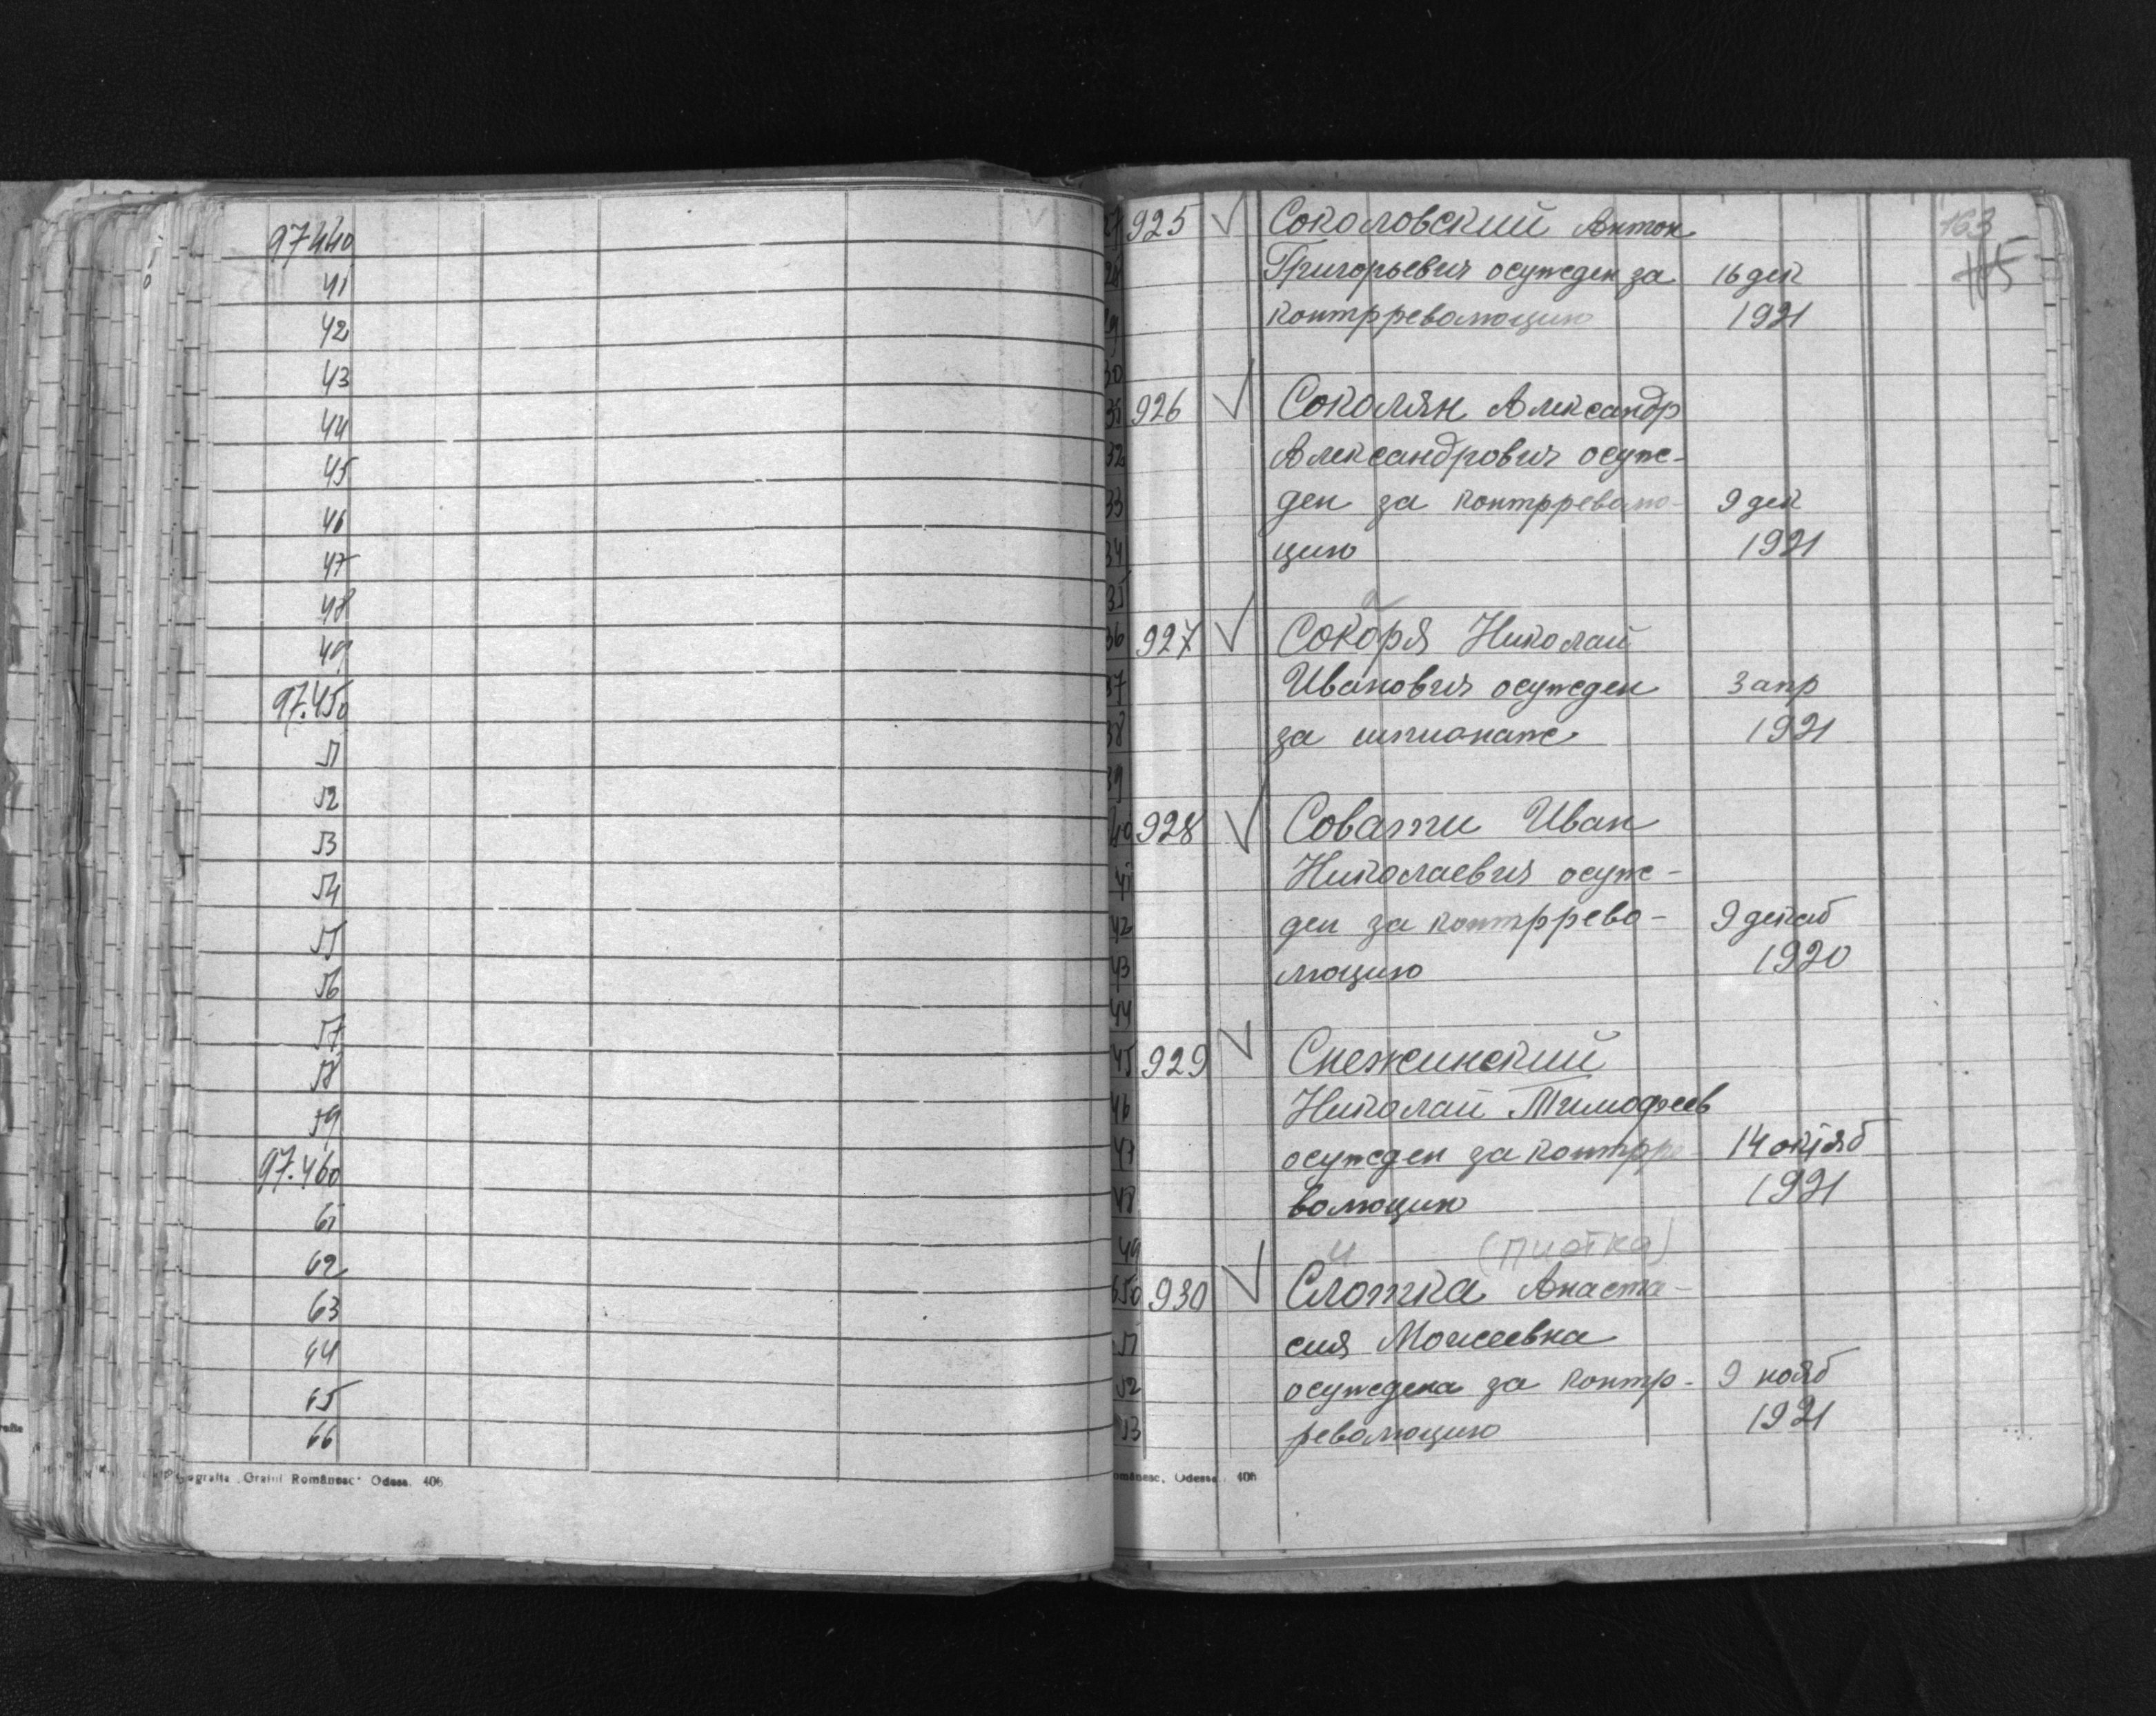 97440
41
42
43
44
45
46
47
48
49
97.450
51
52
53
54
55
56
57
58
59
97.460
61
62
63
64
65
66
Graiul Românesc" Odesa. 406
163
115
925 Соколовский Антон
Григорьевич осужден за 16 дек
контрреволюцию 1921
30
31 926 Соколян Александр
32 Александрович осуж-
33 ден за контрреволю- 9 дек
34 цию 1921
35
36 927 Сокоря Николай
37 Иванович осужден 3 апр
38 за шпионаж 1921
39
40 928 Совати Иван
41 Николаевич осуж-
42 ден за контррево- 9 декаб
43 люцию 1920
44
45 929 Снежинский
46 Николай Тимофеев
47 осужден за контрре 14 октяб
48 волюцию 1921
49 и (пиотка)
650 930 Слотка Анаста-
51 сия Моисеевна
52 осуждена за контр- 9 нояб
53 революцию 1921
Odessa. 406